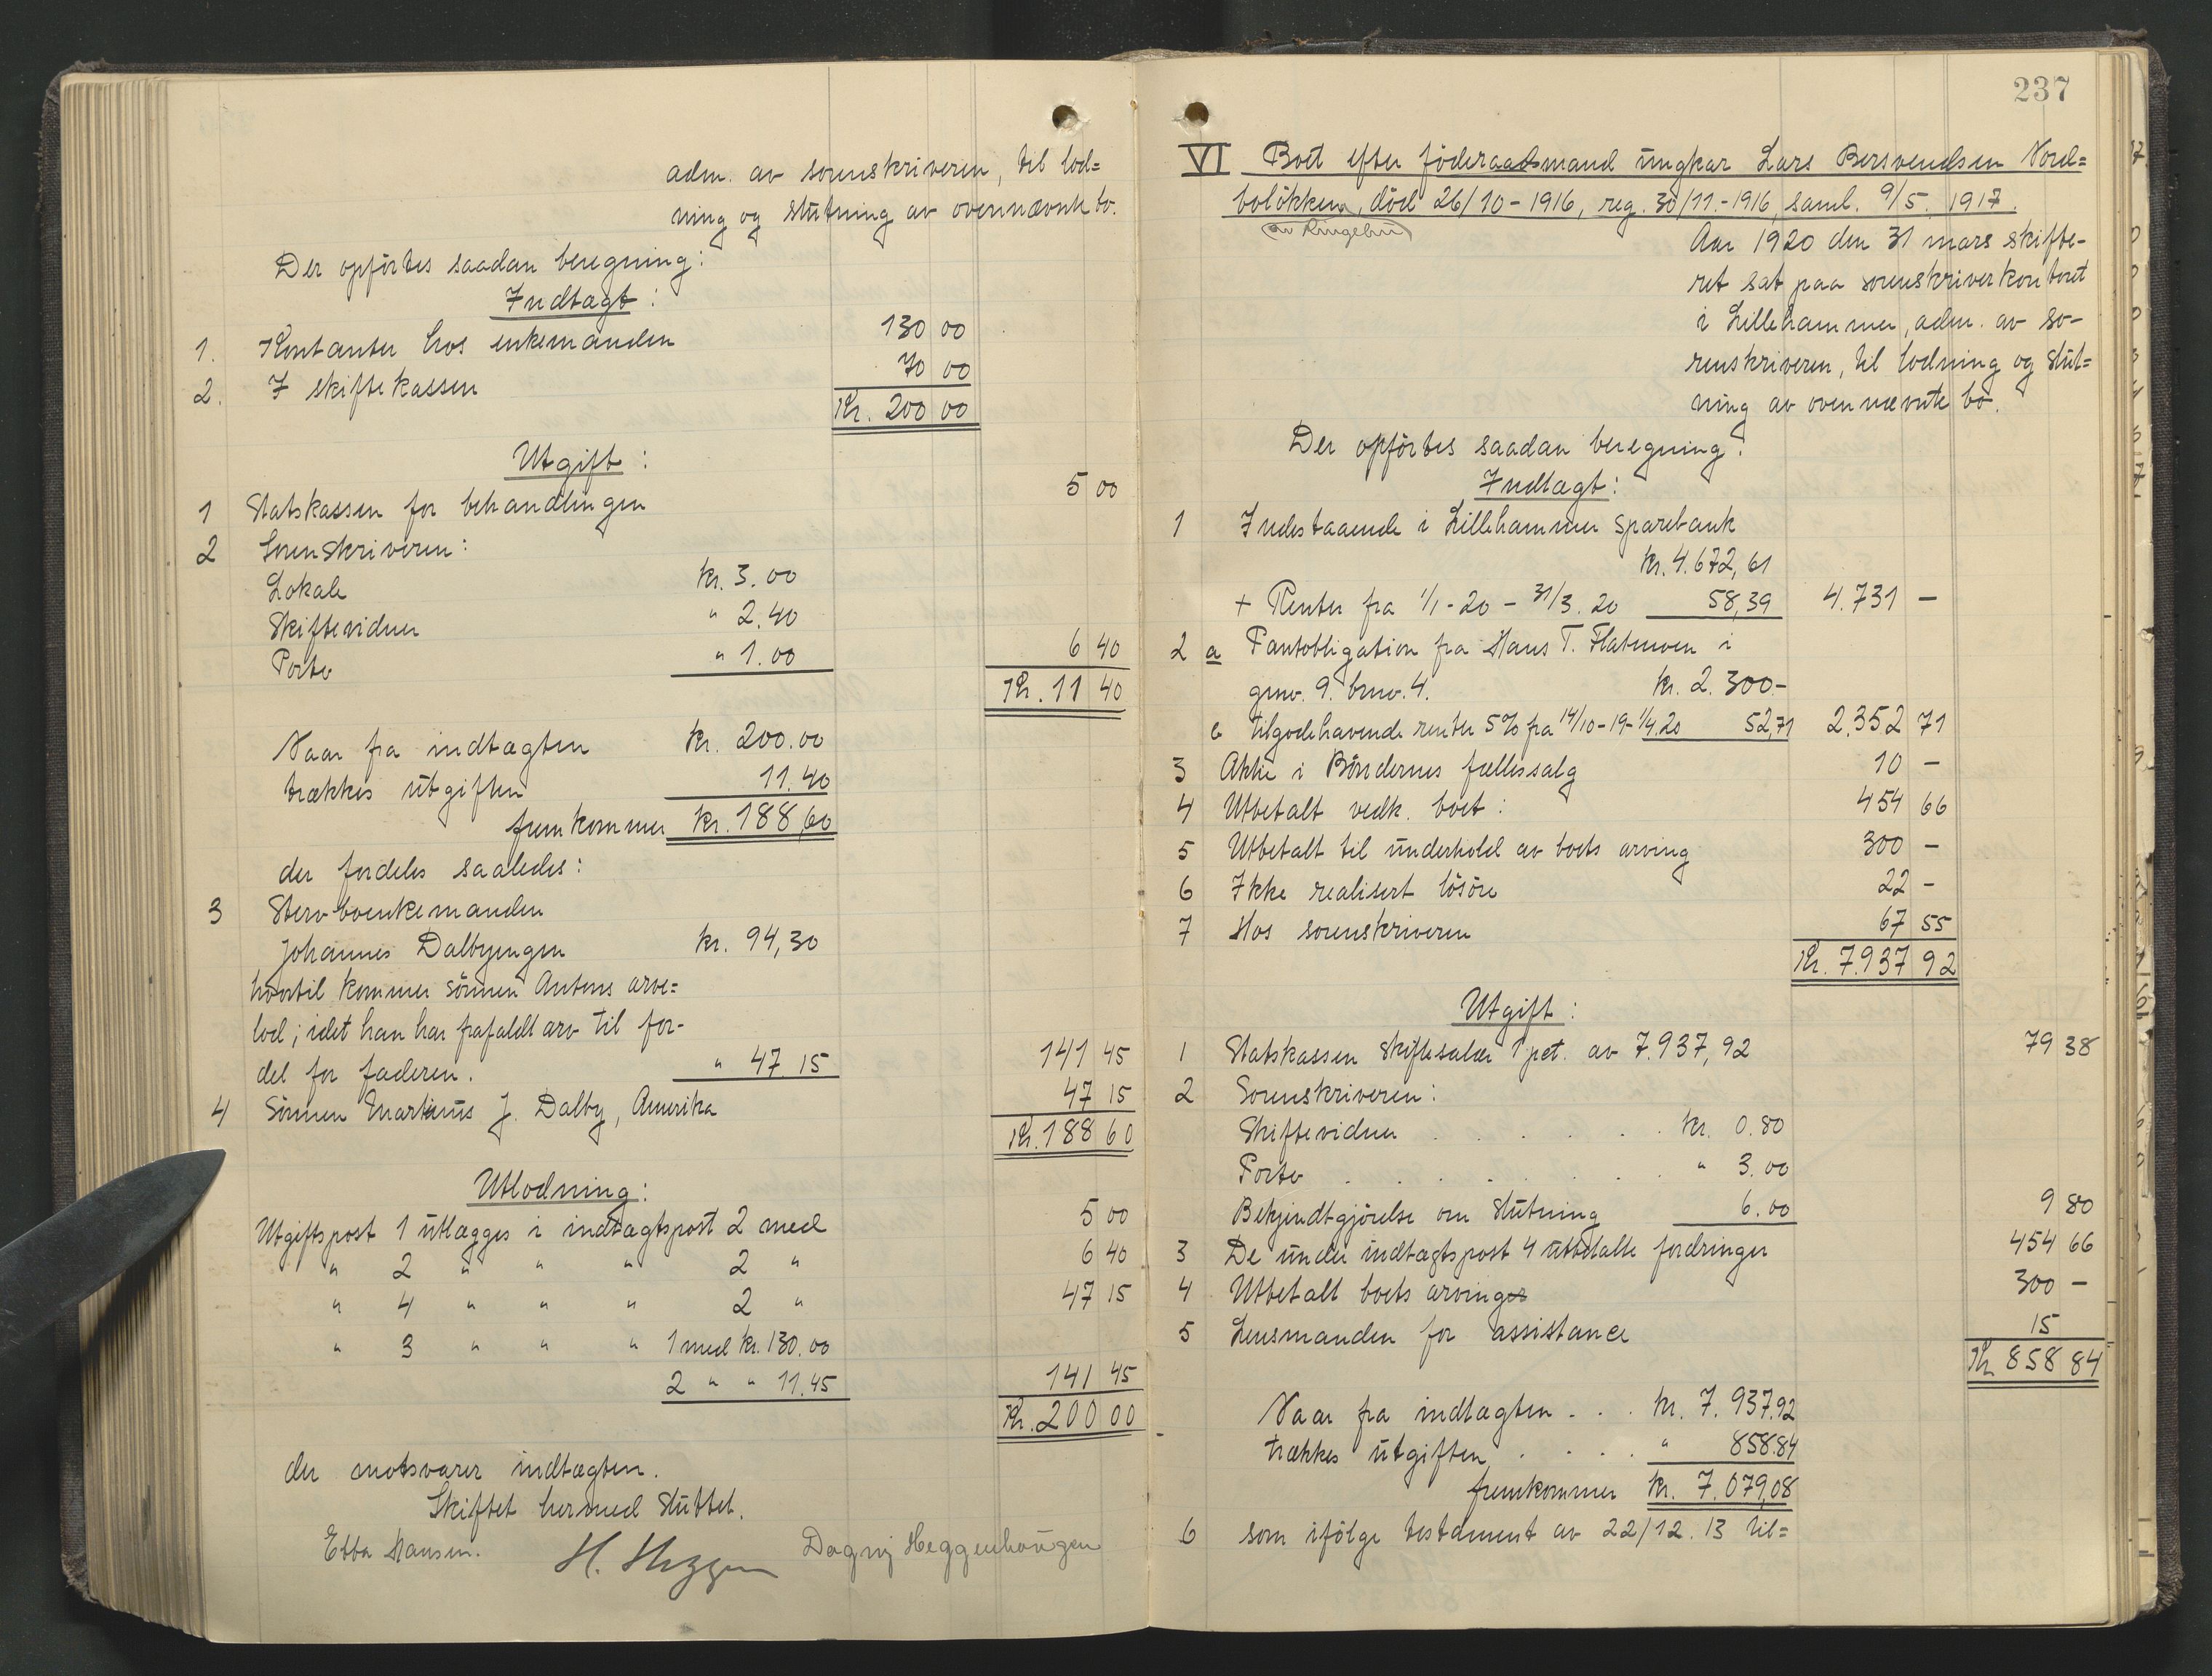 adm. av sorenskriveren, til lod=
ning og slutning av ovennævnte bo.
Der opførtes saadan beregning:
Indtægt:
1. Kontanter hos enkemanden 130 00
2. I skiftekassen 70 00
Kr. 200 00
Utgift:
1 Statskassen for behandlingen 5 00
2 Sorenskriveren:
Lokale kr. 3.00
Skiftevidner " 2.40
Porto " 1.00 6 40
Kr. 11 40
Naar fra indtægten kr. 200.00
trækkes utgiften 11.40
fremkommer kr. 188,60
der fordeles saaledes:
3 Stervboenkemanden
Johannes Dalbyengen kr. 94,30
hvortil kommer sönnen Antons arve=
lod; idet han har frafaldt arv til for-
del for faderen. " 47 15 141 45
4 Sönnen Martinus J. Dalby, Amerika 47 15
Kr. 188 60
Utlodning:
Utgiftspost 1 utlægges i indtægtspost 2 med 5 00
" 2 " " " 2 " 6 40
" 4 " " " 2 " 47 15
" 3 " " " 1 med kr. 130.00
2 " " 11.45 141 45
Kr. 200 00
der motsvarer indtægten.
Skiftet hermed sluttet.
Ebba Hansen. H. Heggen Dagny Heggenhougen
237
VI Boet efter föderaadsmand ungkar Lars Bersvendsen Nord=
bolökken, död 26/10-1916, reg. 30/11.-1916, saml. 9/5. 1917.
av Ringebu
Aar 1920 den 31 mars skifte-
ret sat paa sorenskriverkontoret
i Lillehammer, adm. av so-
renskriveren, til lodning og slut=
ning av ovennævnte bo.
Der opførtes saadan beregning:
Indtægt:
1 Indestaaende i Lillehammer sparebank
kr. 4.672,61
+ Renter fra 1/1-20 - 31/3.20 58,39 4.731 -
2 a Pantobligation fra Hans T. Flatmoen i
gno. 9. bno. 4. kr. 2.300-
b tilgodehavende renter 5% fra 14/10-19-1/4.20 52,71 2.352 71
3 Aktie i Böndernes fællessalg 10 -
4 Utbetalt vedk. boet: 454 66
5 Utbetalt til underhold av boets arving 300 -
6 Ikke realisert lösöre 22 -
7 Hos sorenskriveren 67 55
Kr. 7.937 92
Utgift:
1 Statskassen skiftesalær 1 pct. av 7.937,92 79 38
2 Sorenskriveren:
Skiftevidner . . . . . . kr. 0.80
Porto . . . . . . . " 3.00
Bekjendtgjörelse om slutning 6.00 9 80
3 De under indtægtspost 4 utbetalte fordringer 454 66
4 Utbetalt boets arving 300 -
5 Lensmanden for assistance 15
Kr 858 84
Naar fra indtægten . . . kr. 7.937.92
trækkes utgiften . . . . " 858.84
fremkommer kr. 7.079,08
6 som ifölge testament av 22/12.13 til=